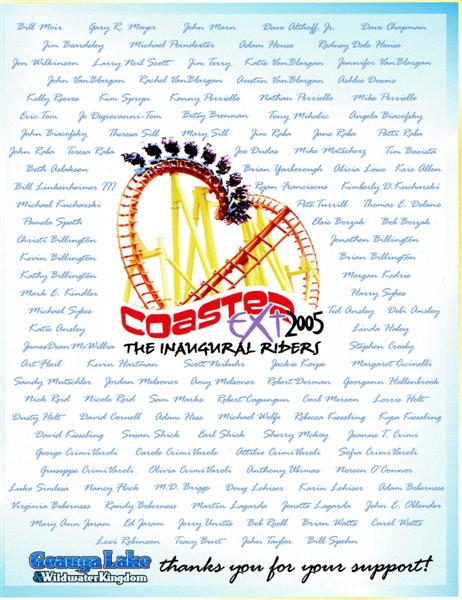 Bill Moir Gary R. Moyer John Marn Dave Althoff, Jr. Dave Chapman
Jim Beardsley Michael Poindexter Adam House Rodney Dale House
Jon Wilkinson Larry Neil Scott Jim Terry Katie VanBlargan Jennifer VanBlargan
John VanBlargan Rachel VanBlargan Austin VanBlargan Ashlee Downs
Kelly Reeves Kim Spryn Kenny Perriello Nathan Perriello Mike Perriello
Eric Tom Jo Degiovanni-Tom Betsy Brennan Tony Mihalic Angela Biacofsky
John Biacofsky Theresa Sill Mary Sill Jim Raba Jane Raba Patti Raba
John Raba Teresa Raba Joe Dudas Mike Matscherz Tim Basista
Beth Aslakson Brian Yarborough Alicia Lowe Kris Allen
Bill Linkenheimer III Ryan Franciscus Kimberly D. Kucharski
Michael Kucharski Pete Turrill Thomas E. Delano
Pamela Spath Elsie Borzak Bob Borzak
Christi Billington Jonathan Billington
Kevin Billington Brian Billington
Kathy Billington Morgan Kedrie
Mark E. Kindler Harry Sykes
Michael Sykes Ted Ansley Debi Ansley
Katie Ansley Linda Haley
James Dean McWillia Stephen Crosby
COASTER EXT 2005
THE INAUGURAL RIDERS
Art Flail Kevin Hartman Scott Neibuhr Jackie Koipe Margaret Cicinelli
Sandy Mutschler Jordan Melsoner Amy Melsoner Robert Derman Georgann Hallenbrook
Nick Reid Nicole Reid Sam Marks Robert Cagungun Carl Merson Lorrie Holt
Dusty Holt David Cornell Adam Hess Michael Wolfe Rebecca Kiessling Kyra Kiessling
David Kiessling Susan Shick Earl Shick Sherry McKay Joanne T. Crimi
George CrimiVaroli Carole CrimiVarole Attilio CrimiVaroli Sofia CrimiVaroli
Guiseppe CrimiVaroli Olivia CrimiVaroli Anthony Wimas Noreen O'Connor
Luko Sinlesa Nancy Flack M.D. Briggs Doug Lehiser Karin Lohiser Adam Boberness
Virginia Boberness Randy Boberness Martin Lagarda Jenette Lagarda John E. Ollender
Mary Ann Jaram Ed Jaram Jerry Unites Bob Roell Brian Watts Carol Watts
Lexi Robinson Tracy Burt John Taylor Bill Spehn
Geauga Lake
& Wildwater Kingdom
thanks you for your support!